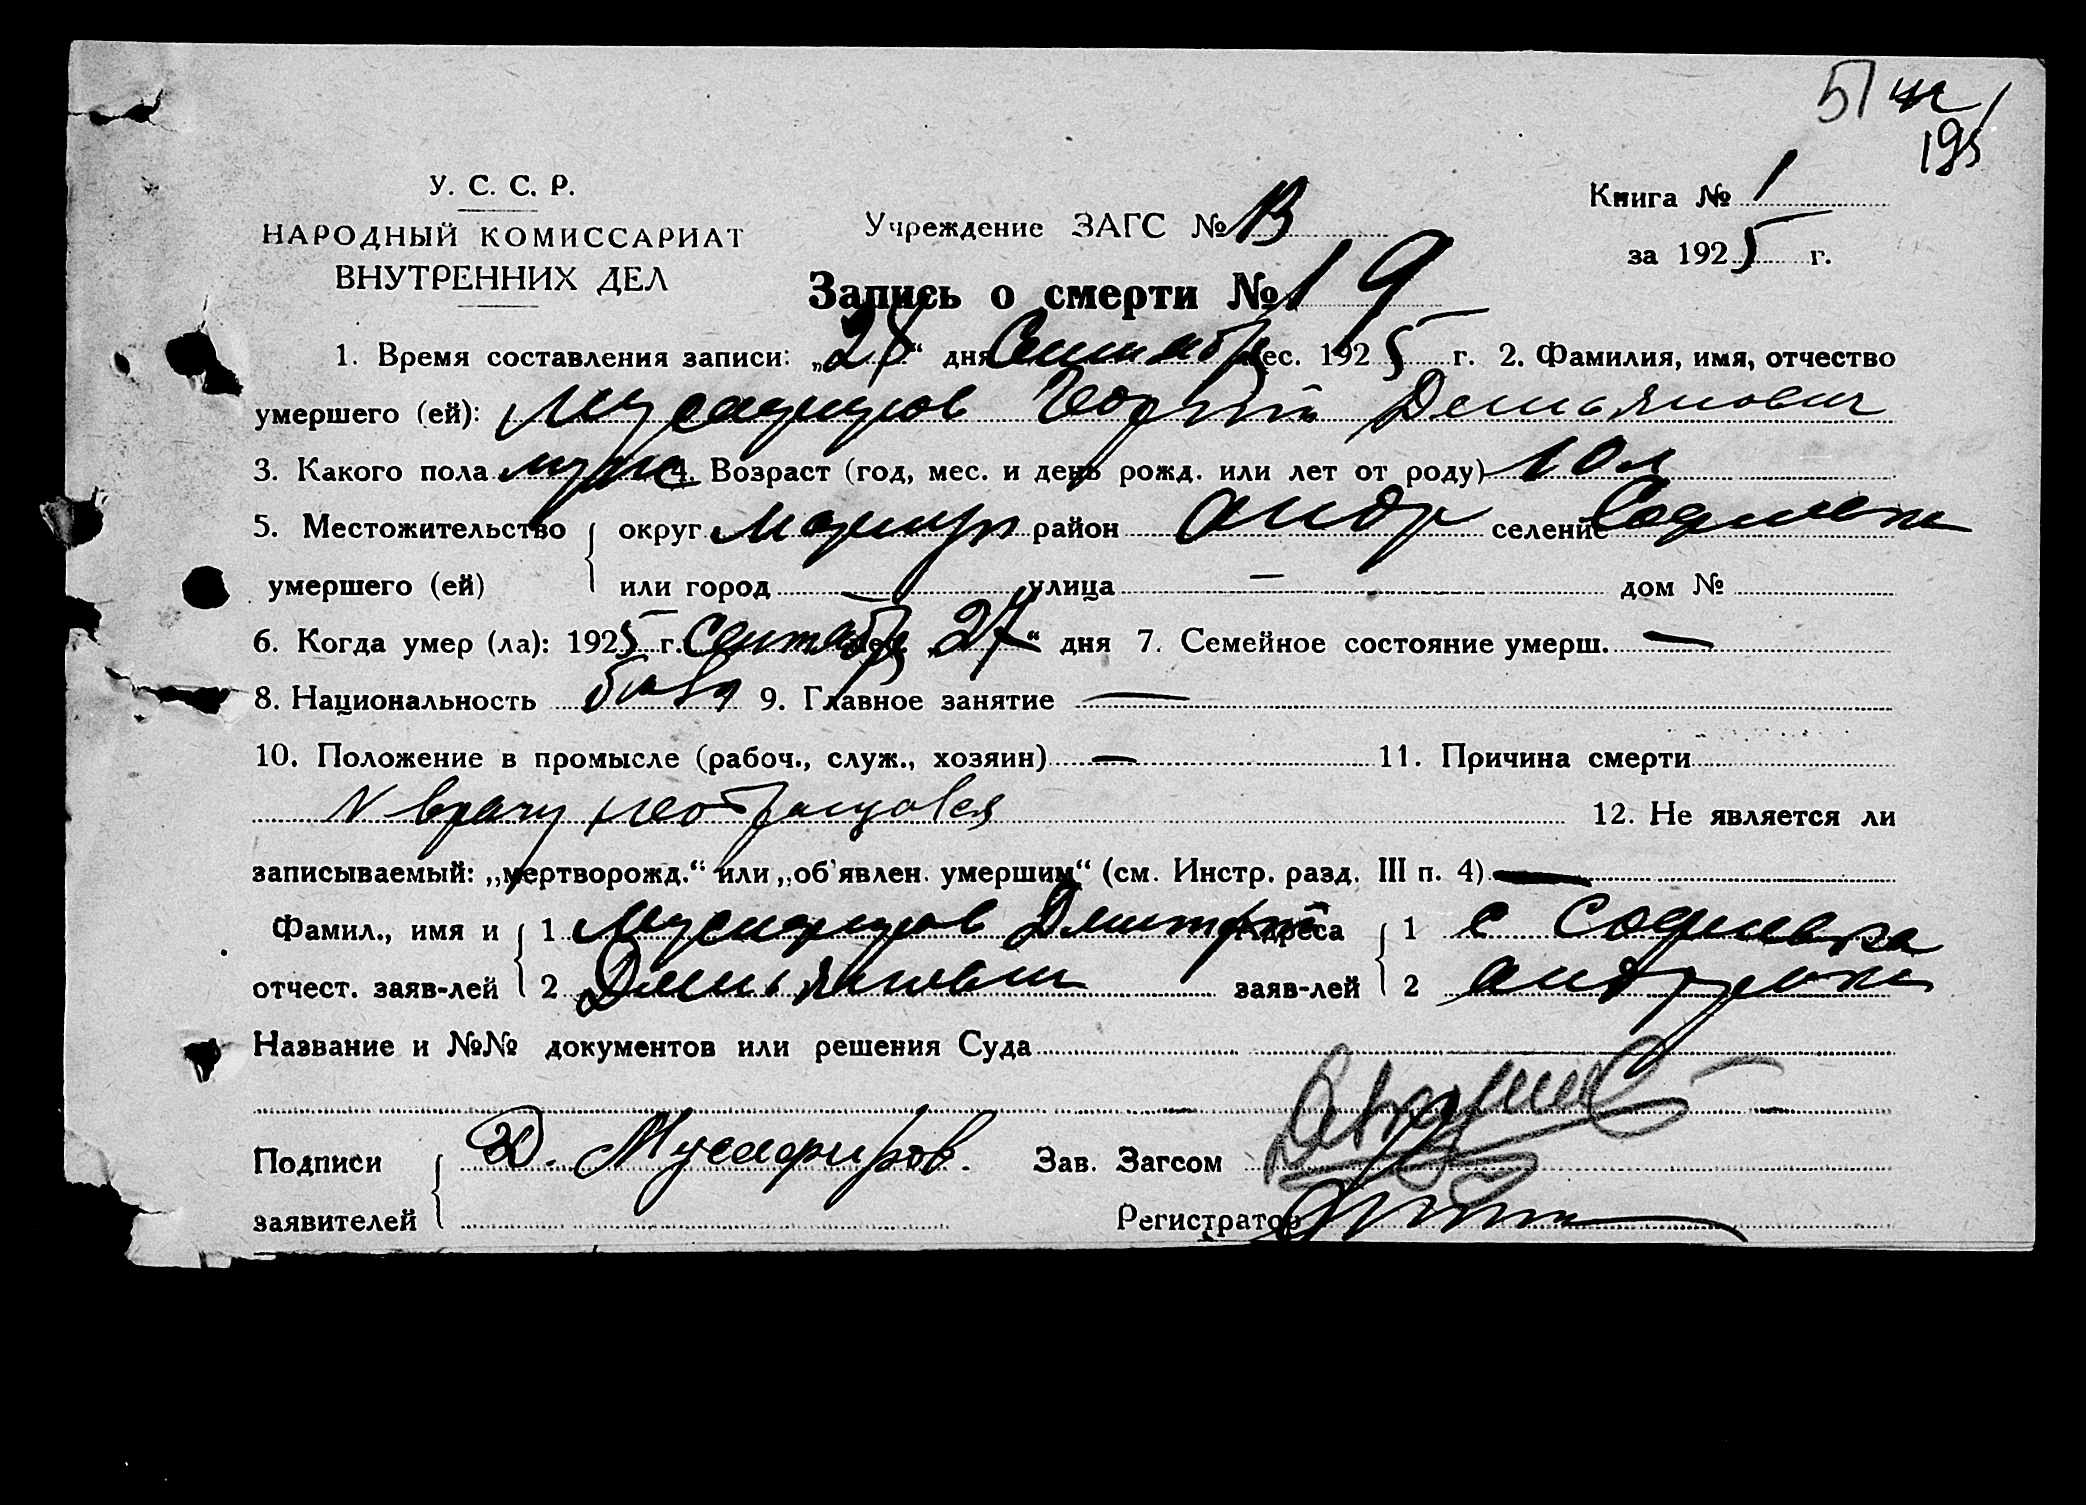 51
195
У. С. С. Р.
НАРОДНЫЙ КОМИССАРИАТ
ВНУТРЕННИХ ДЕЛ
Учреждение ЗАГС №
Книга № 1
за 1925 г.
Запись о смерти № 19
1. Время составления записи: „28“ дня Сентябр мес. 1925 г. 2. Фамилия, имя, отчество
умершего (ей): Мусафиров Георгий Демьянович
3. Какого пола муж 4. Возраст (год, мес. и день рожд. или лет от роду) 10 л
5. Местожительство округ Мариуп район Андр селение
умершего (ей) или город — улица — дом №
6. Когда умер (ла): 1925 г. Сентябр мес. „27“ дня 7. Семейное состояние умерш. —
8. Национальность 9. Главное занятие —
10. Положение в промысле (рабоч., служ., хозяин) — 11. Причина смерти
к врачу необращался 12. Не является ли
записываемый: „мертворожд.“ или „об'явлен. умершим“ (см. Инстр. разд. III п. 4) —
Фамил., имя и 1 Мусафиров Дмитрий Адреса 1 с
отчест. заяв-лей 2 Демьянович заяв-лей 2
Название и №№ документов или решения Суда
Подписи Д. Мусафиров. Зав. Загсом
заявителей Регистратор